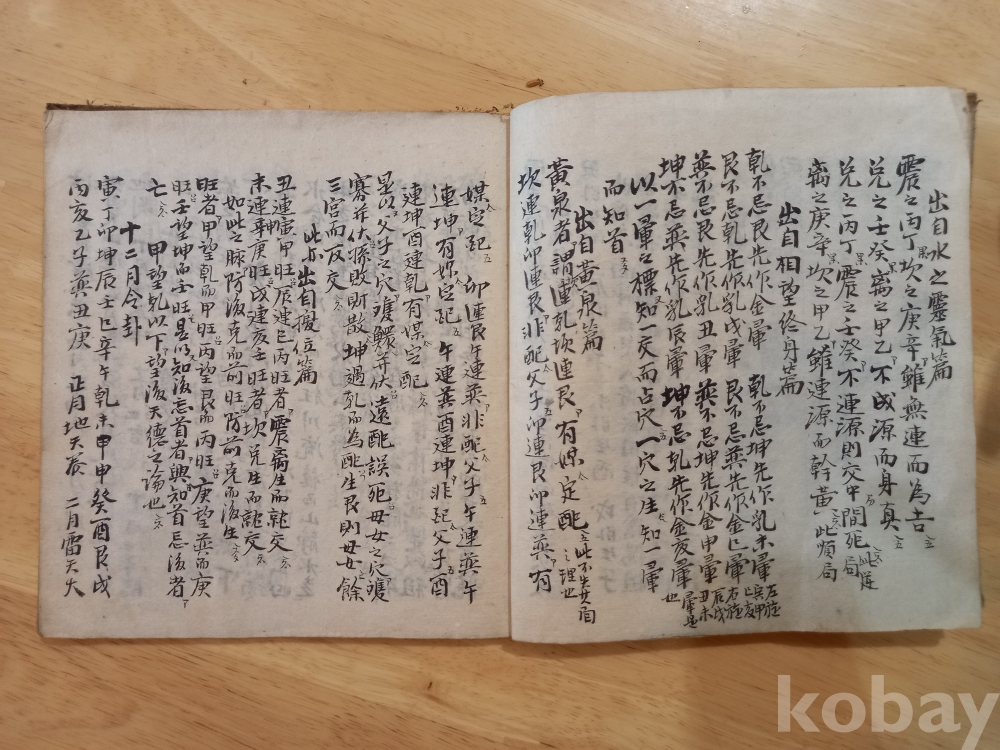 出自水之靈氣篇
震之丙丁坎之庚辛雖無連而為吉
兌之壬癸离之甲乙不成源而身真
兌之丙丁震之壬癸不連源則交中間死局
离之庚辛坎之甲乙雖連源而幹黃此煩局
出自相望終身篇
乾不忌艮先作金暈 乾不忌坤先作乳未暈
艮不忌乾先作乳戌暈 艮不忌巽先作金暈
巽不忌艮先作乳丑暈 巽不忌坤先作金申暈
坤不忌巽先作乳辰暈 坤不忌乾先作金亥暈
以一暈之標知一交而占穴一穴之生知一暈
而知首
出自黃泉篇
黃泉者謂連乾坎連艮有媒定配
坎連乾卯連艮非配父子卯連艮卯連巽有
媒定配 卯連艮午連巽非配父子午連巽午
連坤有媒定配 午連巽酉連坤非配父子酉
連坤酉連乾有媒定配
是以父子之穴雖鰥并伏遠配誤死母女之穴雖
寡并伏孫敗財散坤過乾而為配生艮則母女餘
三宮而反交
出自擬位篇
丑連寅甲旺辰連巳丙旺者震离生而就交
未連申庚旺戌連亥壬旺者坎兌生而就交
如此之脉防後克而前旺防前克而後生
旺者甲望乾而甲旺丙望艮而丙旺庚望巽而庚
旺壬望坤而壬旺是以知後忘首者與知首忌後者
亡 甲望乾以下望後天德之論也
十二月令卦
寅丁卯坤辰壬巳辛午乾未甲申癸酉艮戌
丙亥乙子巽丑庚 正月地天泰 二月雷天大
kobay